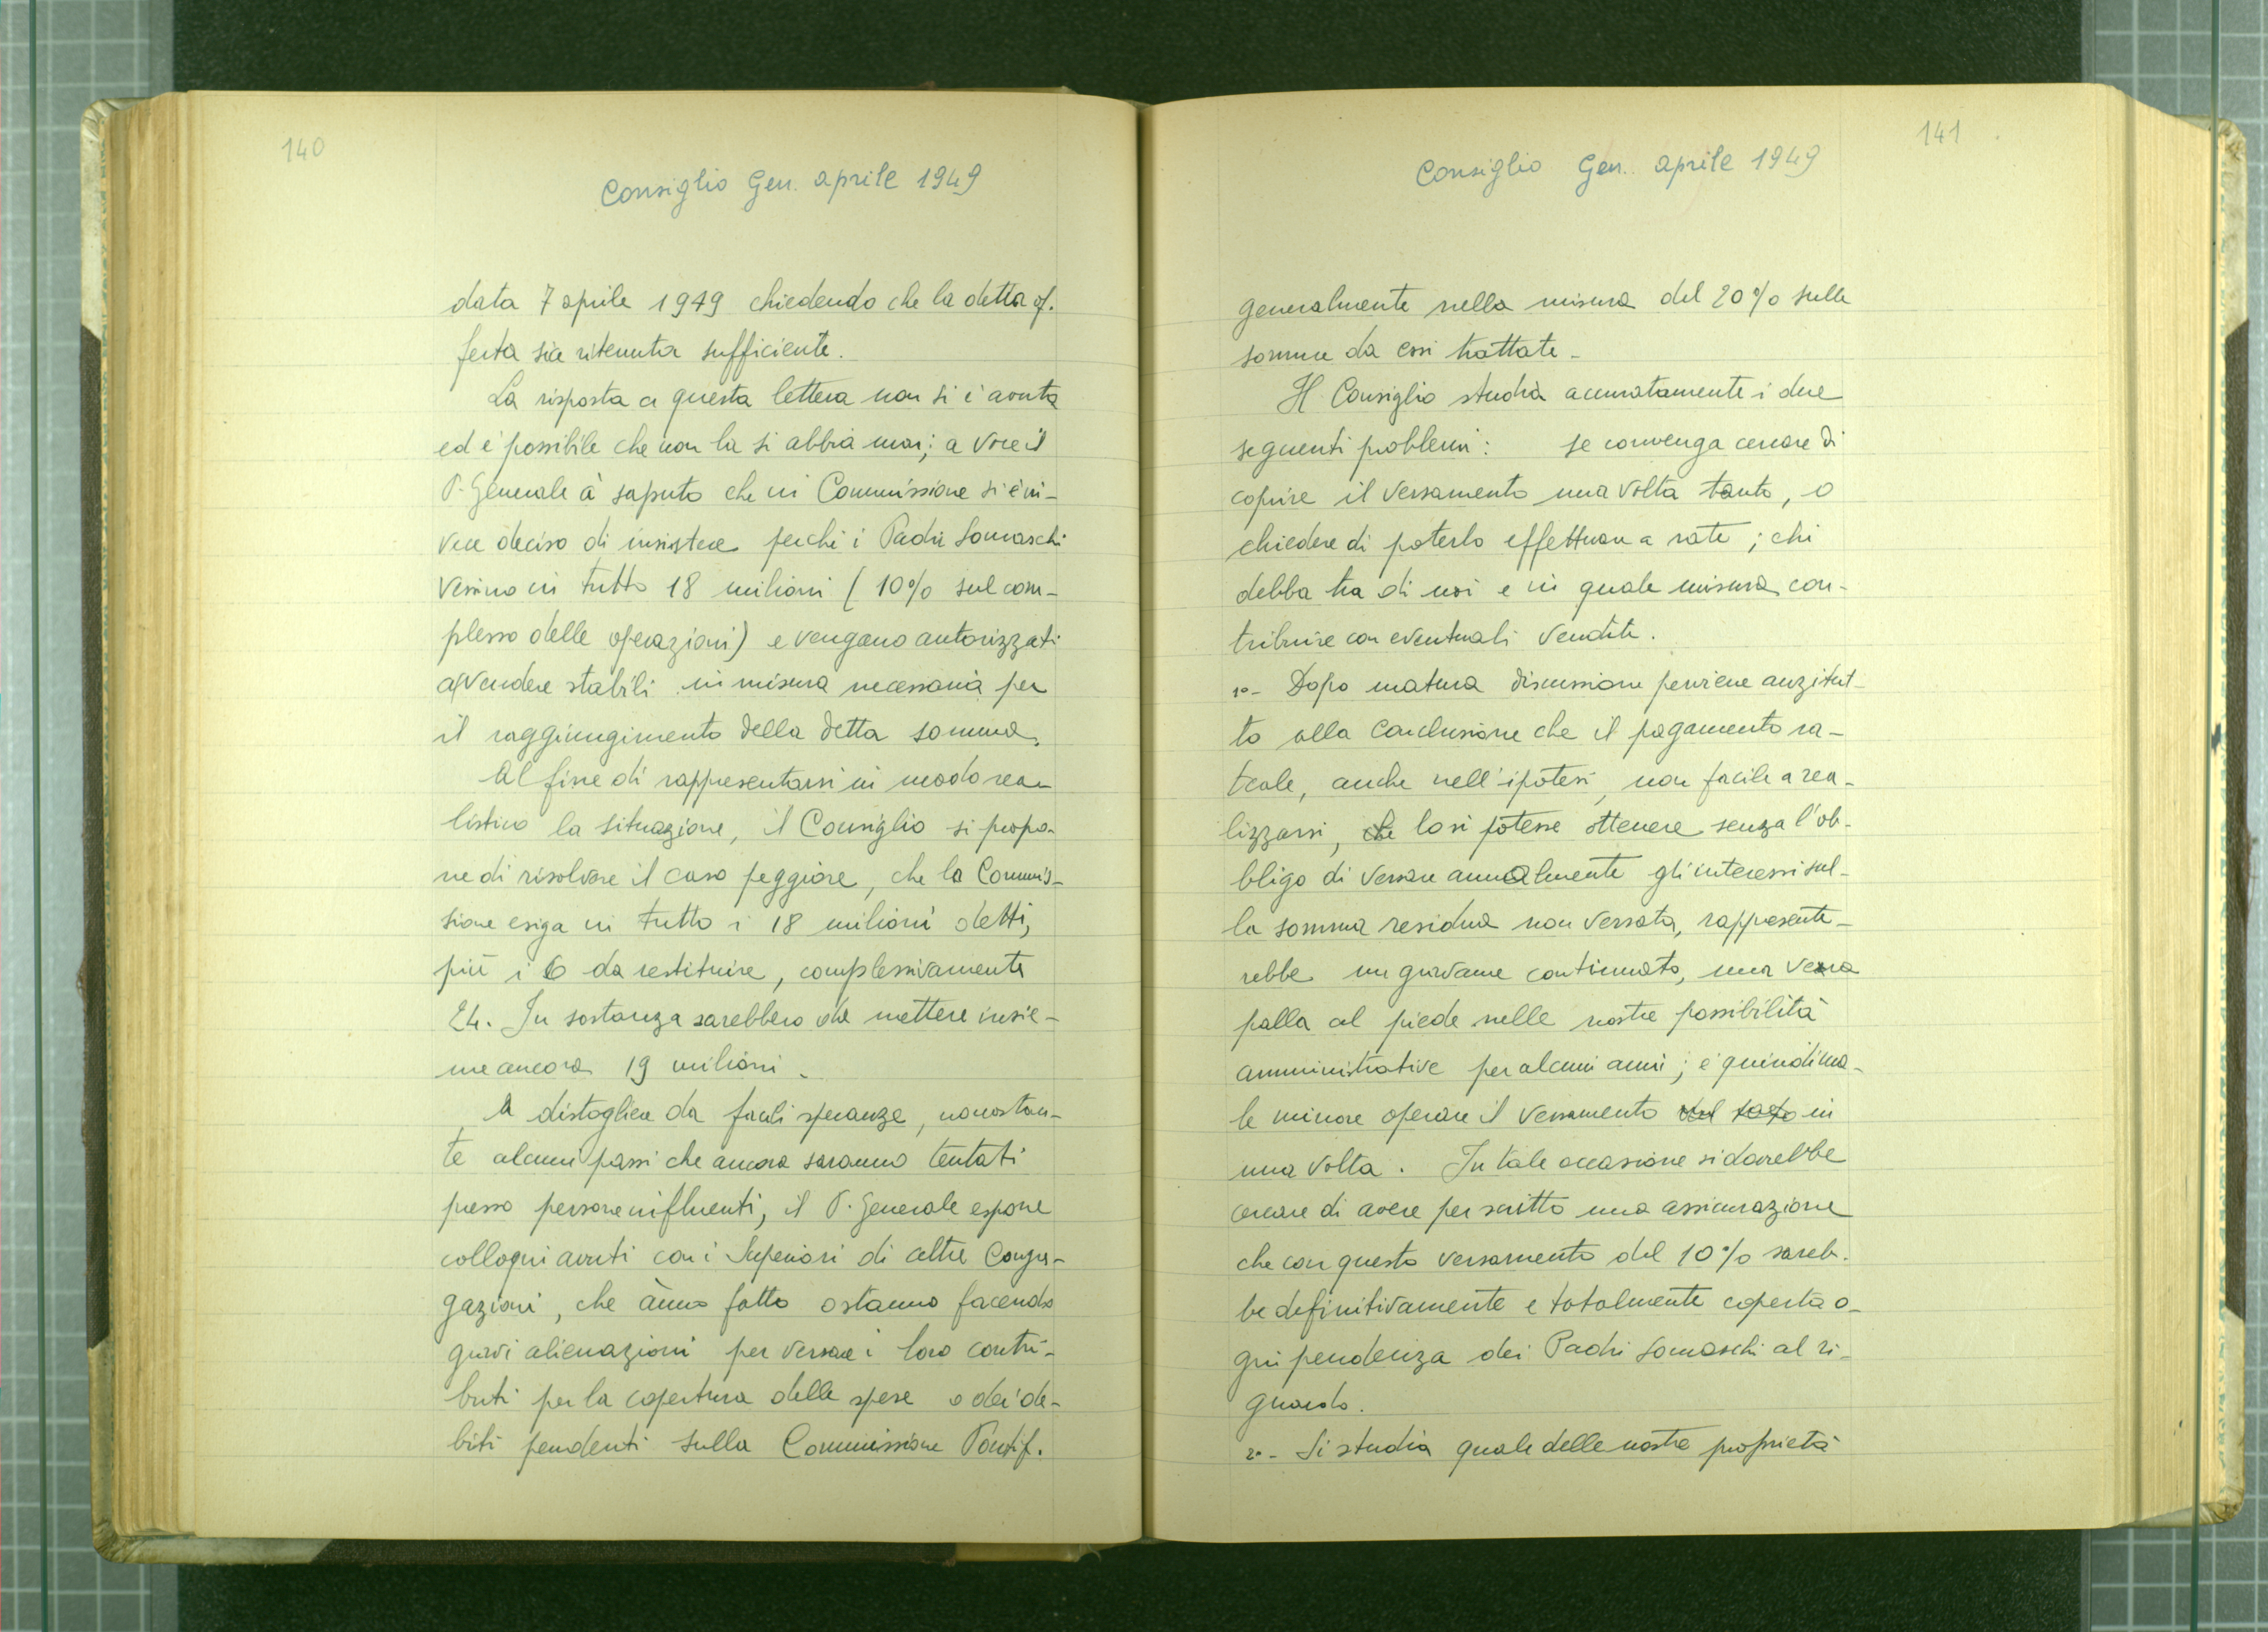 140
Consiglio Gen. aprile 1949
data 7 aprile 1949 chiedendo che la detta of.
ferta sia ritenuta sufficiente.
La risposta a questa lettera non si è avuta
ed è possibile che non la si abbia mai; a voce il
P. Generale à saputo che in Commissione si è in-
vece deciso di insistere perchè i Padri Somaschi
versino in tutto 18 milioni (10% sul com-
plesso delle operazioni) e vengano autorizzati
a vendere stabili in misura necessaria per
il raggiungimento della detta somma.
Al fine di rappresentarsi in modo rea-
listico la situazione, il Consiglio si propo-
ne di risolvere il caso peggiore, che la Commis-
sione esiga in tutto i 18 milioni detti,
più i 6 da restituire, complessivamente
24. In sostanza sarebbero da mettere insie-
me ancora 19 milioni.
A distogliere da facili speranze, nonostan-
te alcuni passi che ancora saranno tentati
presso persone influenti, il P. Generale espone
colloqui avuti con i Superiori di altre Congre-
gazioni, che ànno fatto o stanno facendo
gravi alienazioni per versare i loro contri-
buti per la copertura delle spese o dei de-
biti pendenti sulla Commissione Pontif.
141
Consiglio Gen. aprile 1949
generalmente nella misura del 20% sulle
somme da essi trattate.
Il Consiglio studia accuratamente i due
seguenti problemi: se convenga cercare di
coprire il versamento una volta tanto, o
chiedere di poterlo effettuare a rate; chi
debba tra di noi e in quale misura con-
tribuire con eventuali vendite.
1º- Dopo matura discussione perviene anzitut-
to alla conclusione che il pagamento ra-
teale, anche nell'ipotesi, non facile a rea-
lizzarsi, che lo si potesse ottenere senza l'ob-
bligo di versare annualmente gli interessi sul-
la somma residua non versata, rappresente-
rebbe un gravame continuato, una vera
palla al piede nelle nostre possibilità
amministrative per alcuni anni; è quindi ma-
le minore operare il versamento in
una volta. In tale occasione si dovrebbe
cercare di avere per scritto una assicurazione
che con questo versamento del 10% sareb-
be definitivamente e totalmente coperta o-
gni pendenza dei Padri Somaschi al ri-
guardo.
2º- Si studia quale delle nostre proprietà